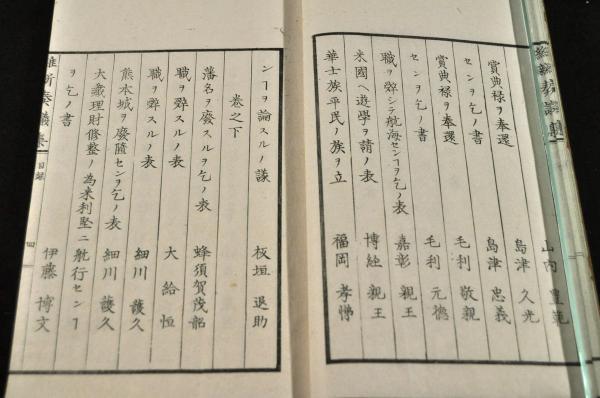 山内 豊範
島津 久光
賞典禄ヲ奉還センヿヲ乞ノ書 島津 忠義
毛利 敬親
賞典禄ヲ奉還センヿヲ乞ノ書 毛利 元徳
職ヲ辞シテ航海センヿヲ乞ノ表 嘉彰 親王
米國ヘ遊學ヲ請ノ表 博経 親王
華士族平民ノ族ヲ立 福岡 孝悌
ンヿヲ論スルノ議 板垣 退助
巻之下
藩名ヲ廢スルヲ乞ノ表 蜂須賀茂韶
職ヲ辞スルノ表 大給 恒
職ヲ辞スルノ表 細川 護久
熊本城ヲ廢隳センヲ乞ノ表 細川 護久
大蔵理財修整ノ為米利堅ニ航行センヿ
ヲ乞ノ書 伊藤 博文
維新奏議集 目録 四